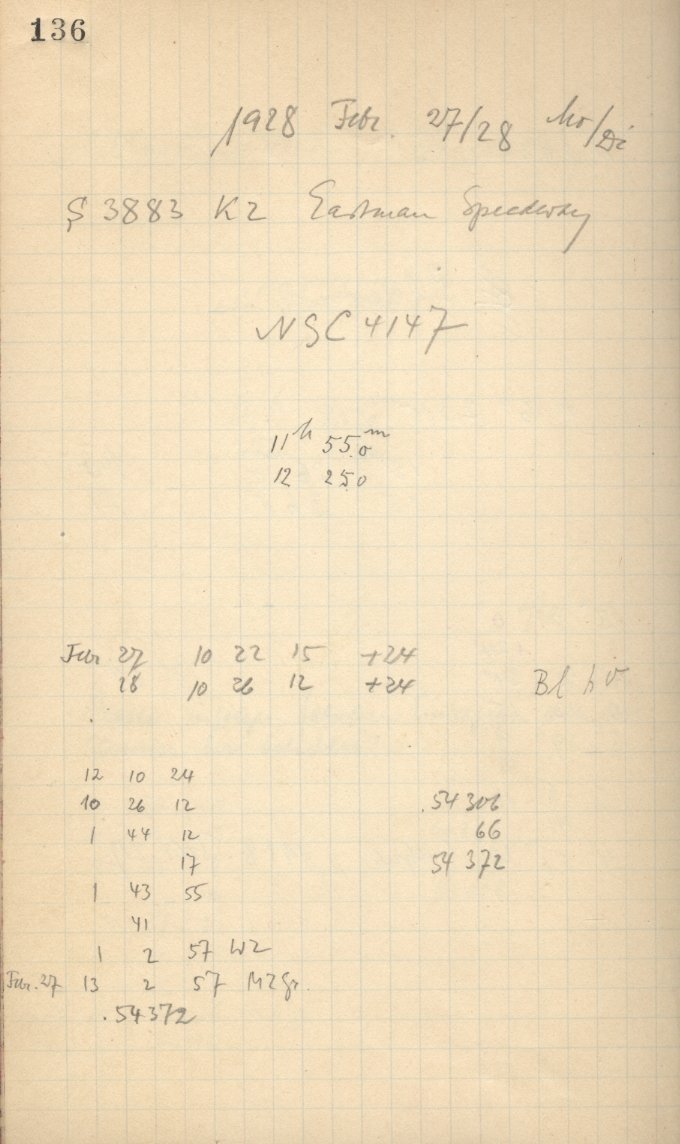 136
1928 Febr. 27/28 Mo/Di
S 3883 K2 Eastman Speedway
NGC 4147
11h 55.0m
12 25.0
Febr 27 10 22 15 +24
28 10 26 12 +24 Bl h v
12 10 24
10 26 12 .54306
1 44 12 66
17 54372
1 43 55
41
1 2 57 WZ
Febr. 27 13 2 57 MZGr.
.54372